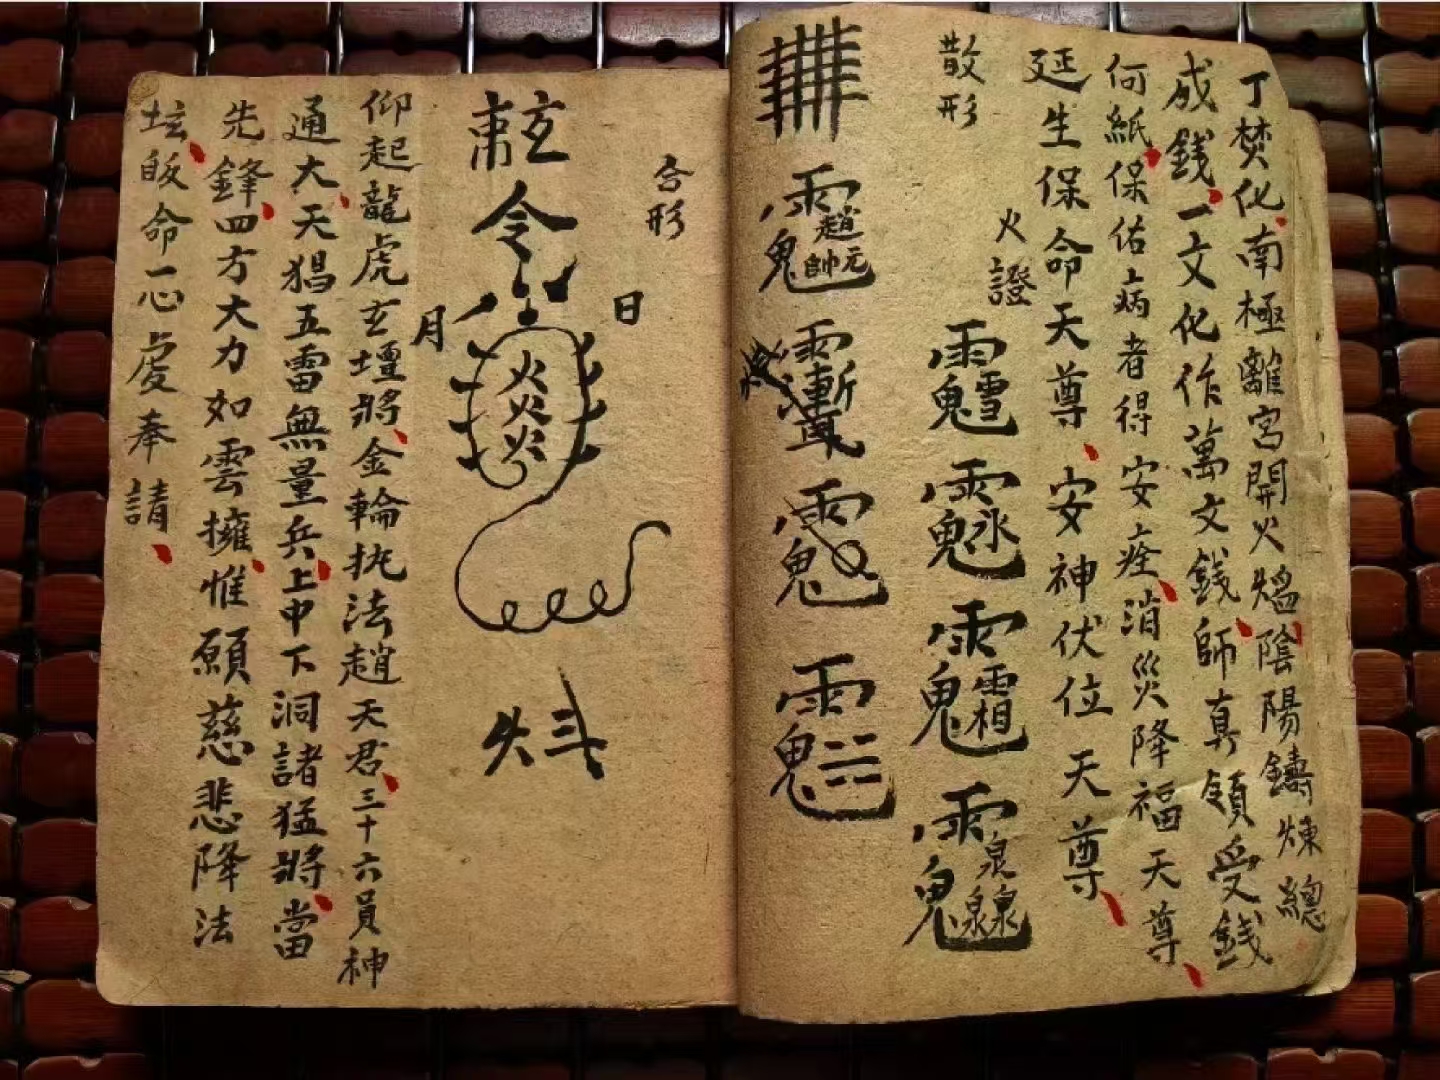 丁焚化南極離宮開火熖陰陽鑄煉總
成錢一文化作萬文錢師真領受錢
何紙保佑病者得安痊消災降福天尊
延生保命天尊安神伏位天尊
火證
散形
合形
令
日
月
炎炎
仰起龍虎玄壇將金輪执法趙天君三十六員神
通大天猖五雷無量兵上中下洞諸猛將當
先鋒四方大力如雲擁惟願慈悲降法
坛皈命一心虔奉請